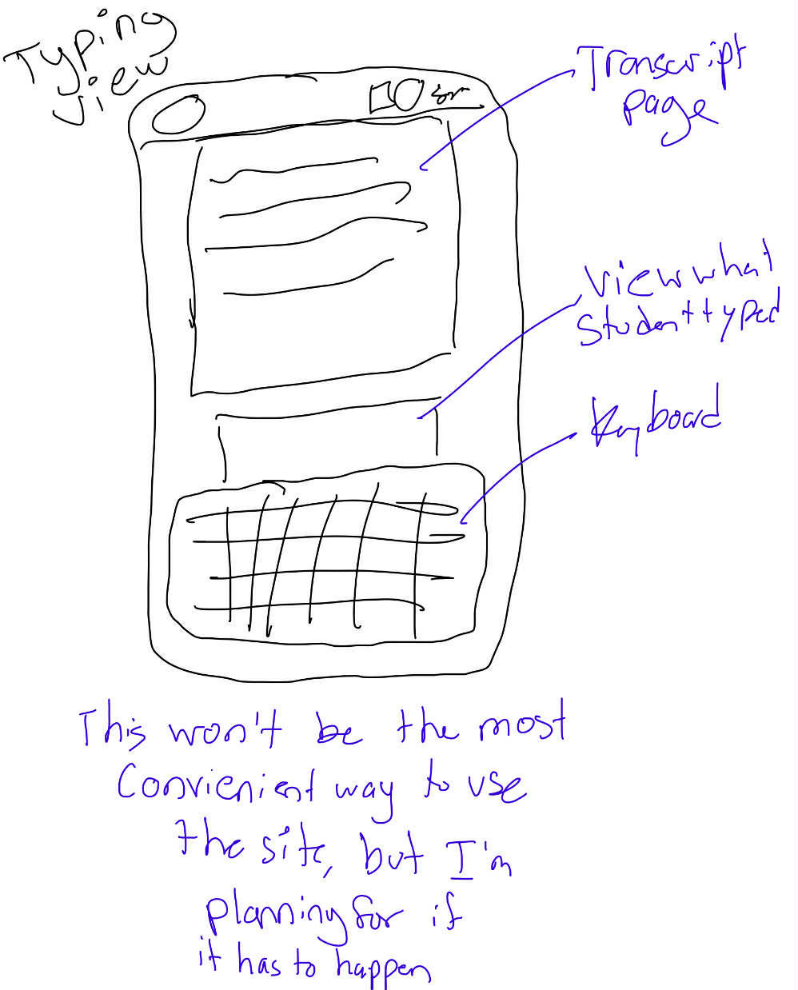 Typing
view
Transcript
page
view what
student typed
Keyboard
This won't be the most
Convienient way to use
the site, but I'm
planning for if
it has to happen